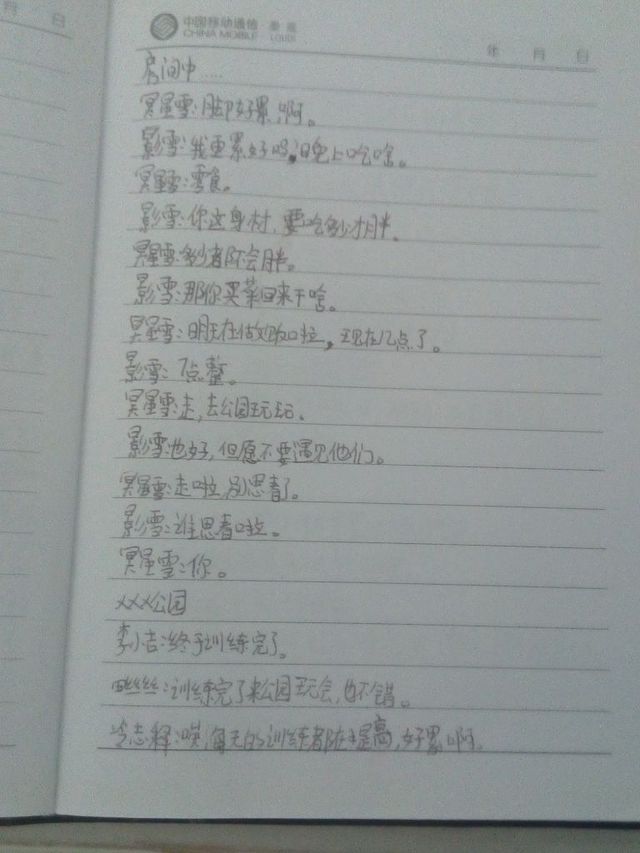 月 日
中国移动通信
CHINA MOBILE
年 月 日
房间中.....
冥星雪:脚好累啊。
影雪:我更累好吗,晚上吃啥。
冥星雪:零食。
影雪:你这身材,要吃多少才胖。
冥星雪:多少都不会胖。
影雪:那你买菜回来干啥。
冥星雪:明天在做呗啦,现在几点了。
影雪:7点整。
冥星雪:走,去公园玩玩。
影雪:也好,但愿不要遇见他们。
冥星雪:走啦,别思着了。
影雪:谁思着啦。
冥星雪:你。
XXX公园
李小吉:终于训练完了。
丝丝:训练完了来公园玩会,也不错。
志释:唉,每天的训练都在提高,好累啊。